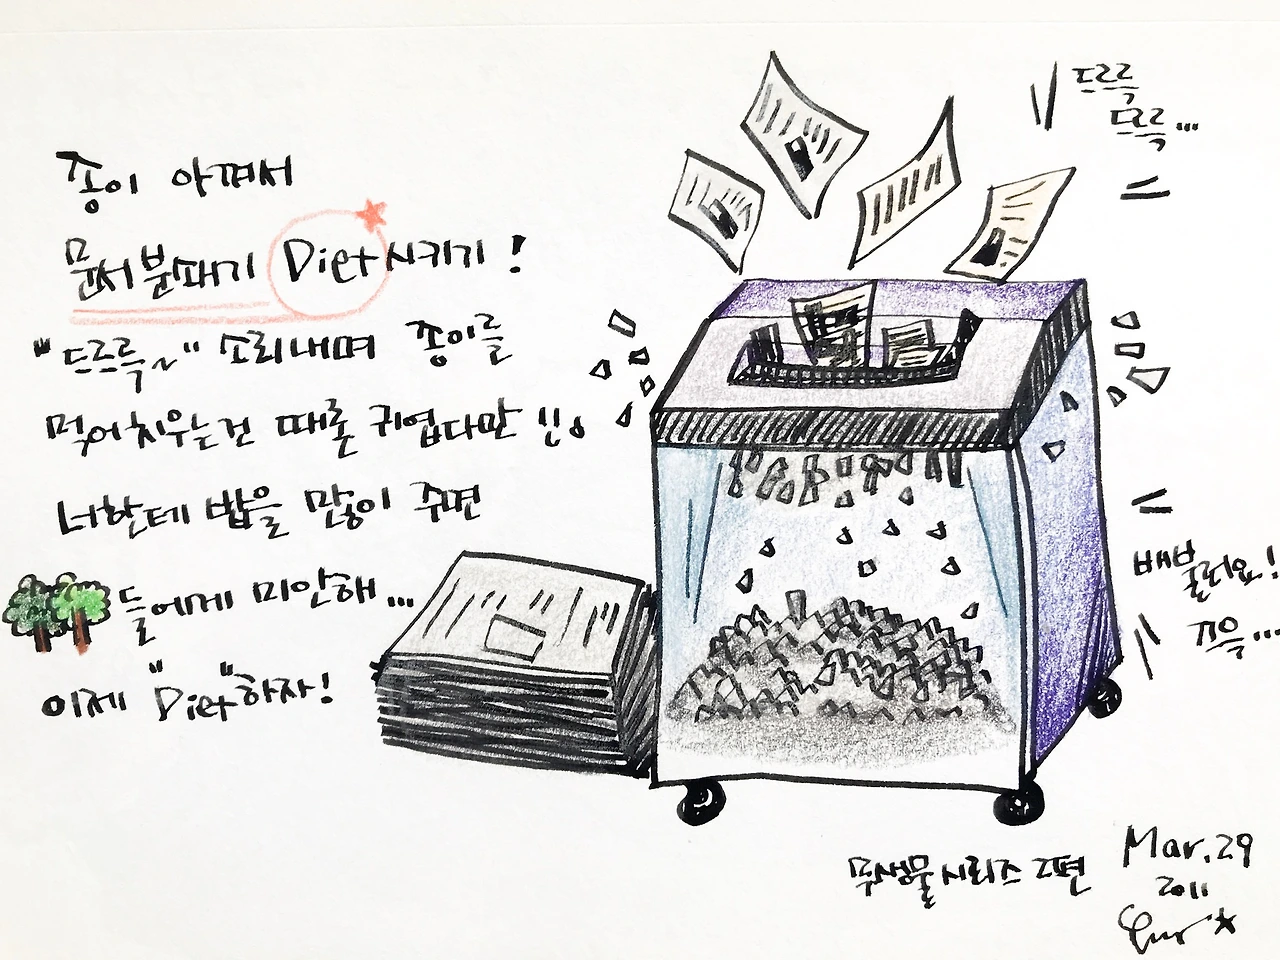 종이 아껴서
문서분쇄기 Diet시키기!
"드르륵~" 소리내며 종이를
먹어치우는건 때론 귀엽다만!!
너한테 밥을 많이 주면
들에게 미안해...
이제 "Diet"하자!
드르륵
드르륵...
배불러요!
끄윽...
무생물시리즈 2편
Mar.29
2011